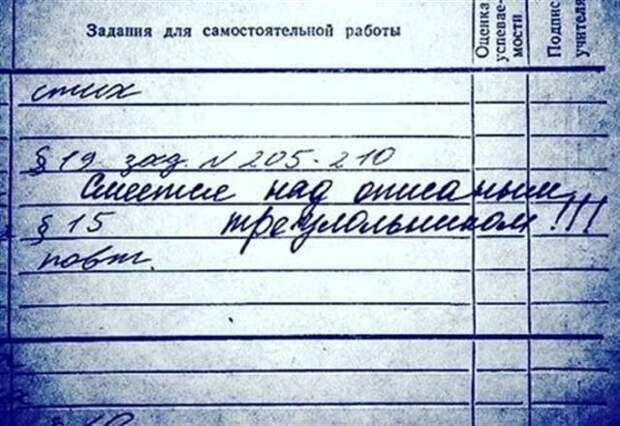 Задания для самостоятельной работы
Оценка успевае-мости
Подпис учителя
стих
§ 19. зад. N 205-210
Смеется над описаным
§ 15 треугольником!!!
повт.